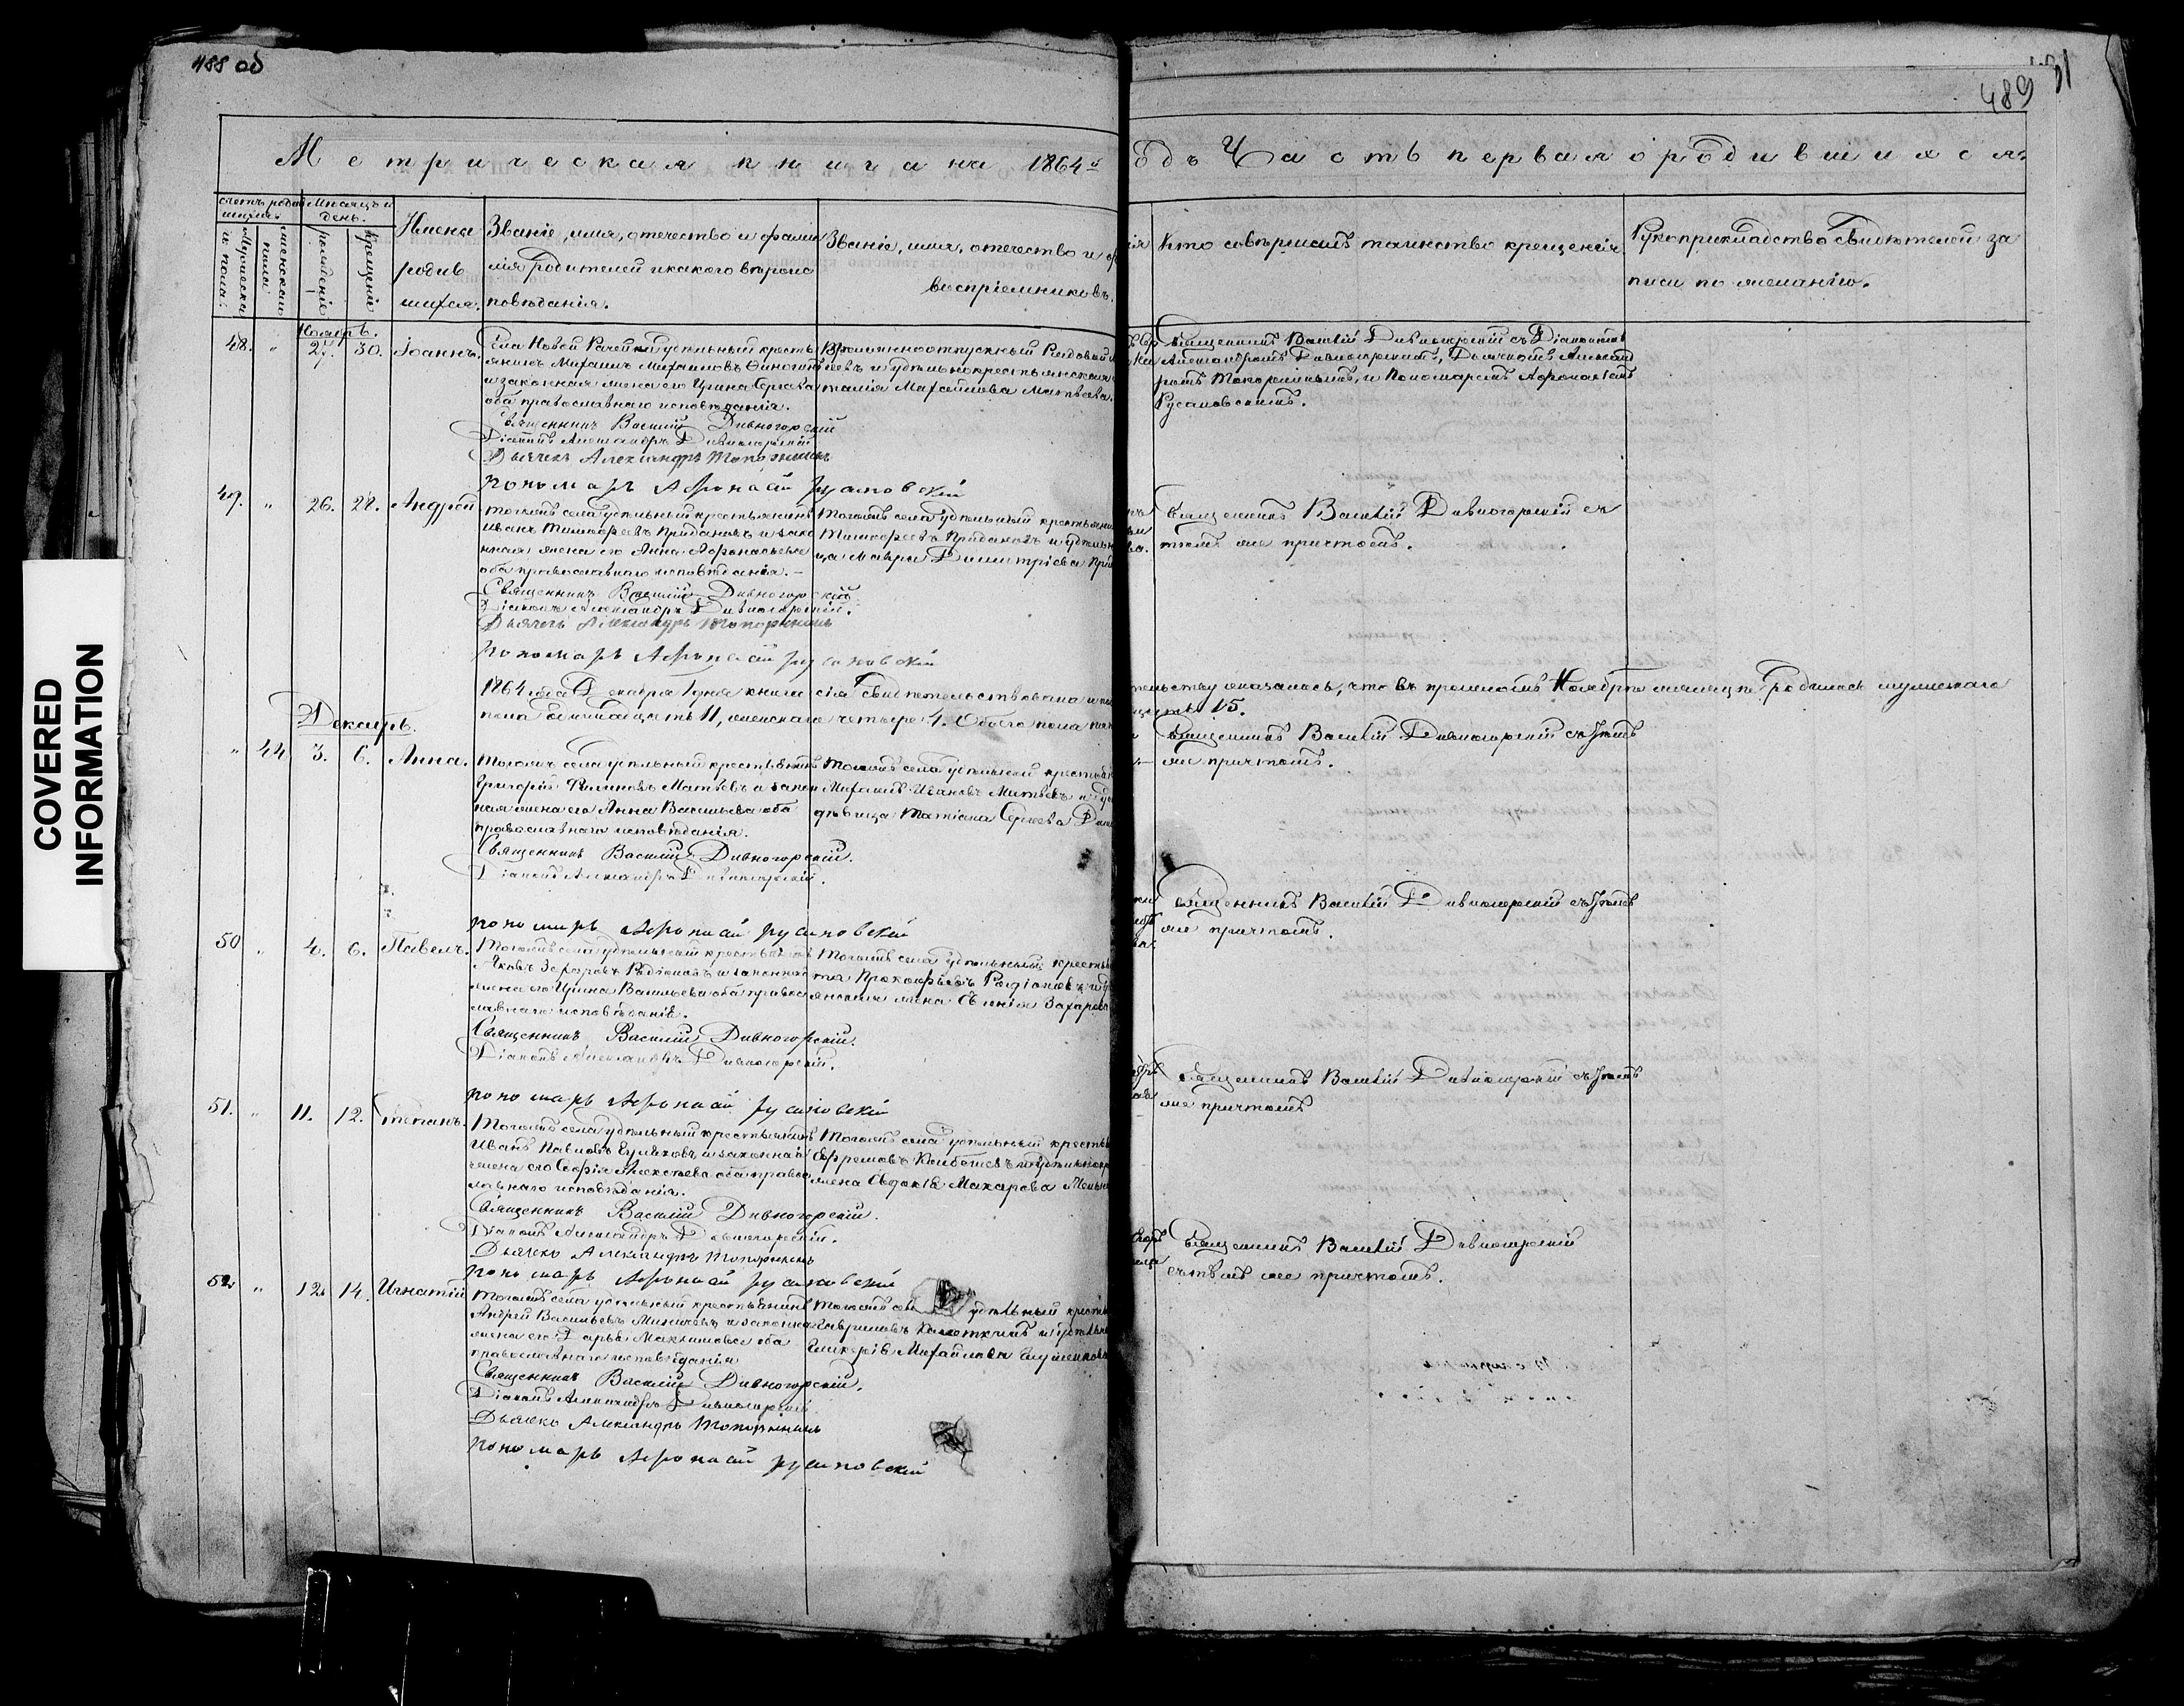 488 об
489
Метрическая книга на 1864й
одъ Часть первая о родившихся.
счетъ родив
шихся
Мѣсяцъ и
день.
Мужеска
го пола.
женскаго
пола
рожденіе
крещеніе
Имена
родив
шихся.
Званіе, имя, отечество и фами
лія родителей и какого вѣроис
повѣданія.
Званіе, имя, отечество и ф
воспріемниковъ.
Кто совершилъ таинство крещенія
Рукоприкладство свидѣтелей за
писи по желанію.
Ноябрь.
48. " 27. 30. Іоаннъ.
Села Новой Рачейки удѣльный кресть
янинъ Михаилъ Михаиловъ
и законная жена его Ирина Сергѣева
оба православнаго исповѣданія.
Священникъ Василій Дивногорскій
Діаконъ Александръ Дивногорскій
Дьячекъ Александръ Топорнинъ
пономарь Афонасій русановскій
Временноотпускный Рядовой
и удѣльнокрестьянская
талія Михаилова Матвѣева.
Священникъ Василій Дивногорскій съ Діакономъ
Александромъ Дивногорскимъ, Дьячкомъ Александ
ромъ Топорнинымъ, и Пономаремъ Афонасіемъ
Русановскимъ.
49. " 26. 28. Андрей
Тогожъ села удѣльный крестьянинъ
Иванъ Тимофеевъ Придановъ и зако
нная жена его Анна Афонасьева
оба православнаго исповѣданія.
Священникъ Василій Дивногорскій
Діаконъ Александръ Дивногорскій.
Дьячекъ Александръ Топорнинъ
пономарь Афонасій русановскій
Тогожъ села удѣльный крестьяни
Тимофеевъ Придановъ и удѣльн
ца Мавра Димитріева При
Священникъ Василій Дивногорскій съ
тѣмъ же причтомъ.
1864 года Декабря 1 дня книга сія свидѣтельствована и по
тельству оказалось, что въ прошломъ Ноябрѣ мѣсяцѣ родилось мужескаго
пола одинадцать 11, женскаго четыре 4. Обоего пола пят
надцать 15.
Декабрь.
" 44 3. 6. Анна.
Тогожъ села удѣльный крестьянинъ
Григорій Филиповъ Матвѣевъ и закон
ная жена его Анна Васильева оба
православнаго исповѣданія.
Священникъ Василій Дивногорскій.
Діаконъ Александръ Дивногорскій.
пономарь Афонасій русановскій
Тогожъ села удѣльный крестья
Михаилъ Ивановъ Матвѣевъ и уд
дѣвица Татіана Сергѣева
Священникъ Василій Дивногорскій съ тѣмъ
же причтомъ.
50 " 4. 6. Павелъ.
Тогожъ села удѣльный крестьянинъ
Яковъ Захаровъ Радіоновъ и законная
жена его Ирина Васильева оба правос
лавнаго исповѣданія.
Священникъ Василій Дивногорскій.
Діаконъ Александръ Дивногорскій.
пономарь Афонасій русановскій
Тогожъ села удѣльный кресть
та Прокофьевъ Радіоновъ и уд
янская жена Евгенія Захарова
Священникъ Василій Дивногорскій съ тѣмъ
же причтомъ.
51. " 11. 12. Степанъ.
Тогожъ села удѣльный крестьянинъ
Иванъ Павловъ и законная
жена его Софія Алексѣева оба правос
лавнаго исповѣданія.
Священникъ Василій Дивногорскій.
Діаконъ Александръ Дивногорскій.
Дьячекъ Александръ Топорнинъ
пономарь Афонасій русановскій
Тогожъ села удѣльный кресть
Ефремовъ и удѣльнокр
жена Евдокія Макарова
Священникъ Василій Дивногорскій съ тѣмъ
же причтомъ
52 " 12 14. Игнатій
Тогожъ села удѣльный крестьянинъ
Андрей Васильевъ и законна
жена его Дарья Максимова оба
православнаго исповѣданія
Священникъ Василій Дивногорскій.
Діаконъ Александръ Дивногорскій
Дьячекъ Александръ Топорнинъ
пономарь Афонасій русановскій
Тогожъ се удѣльный кресть
Гавриловъ и удѣльн
Гликерія Михайлова
Священникъ Василій Дивногорскій
съ тѣмъ же причтомъ.
COVERED
INFORMATION